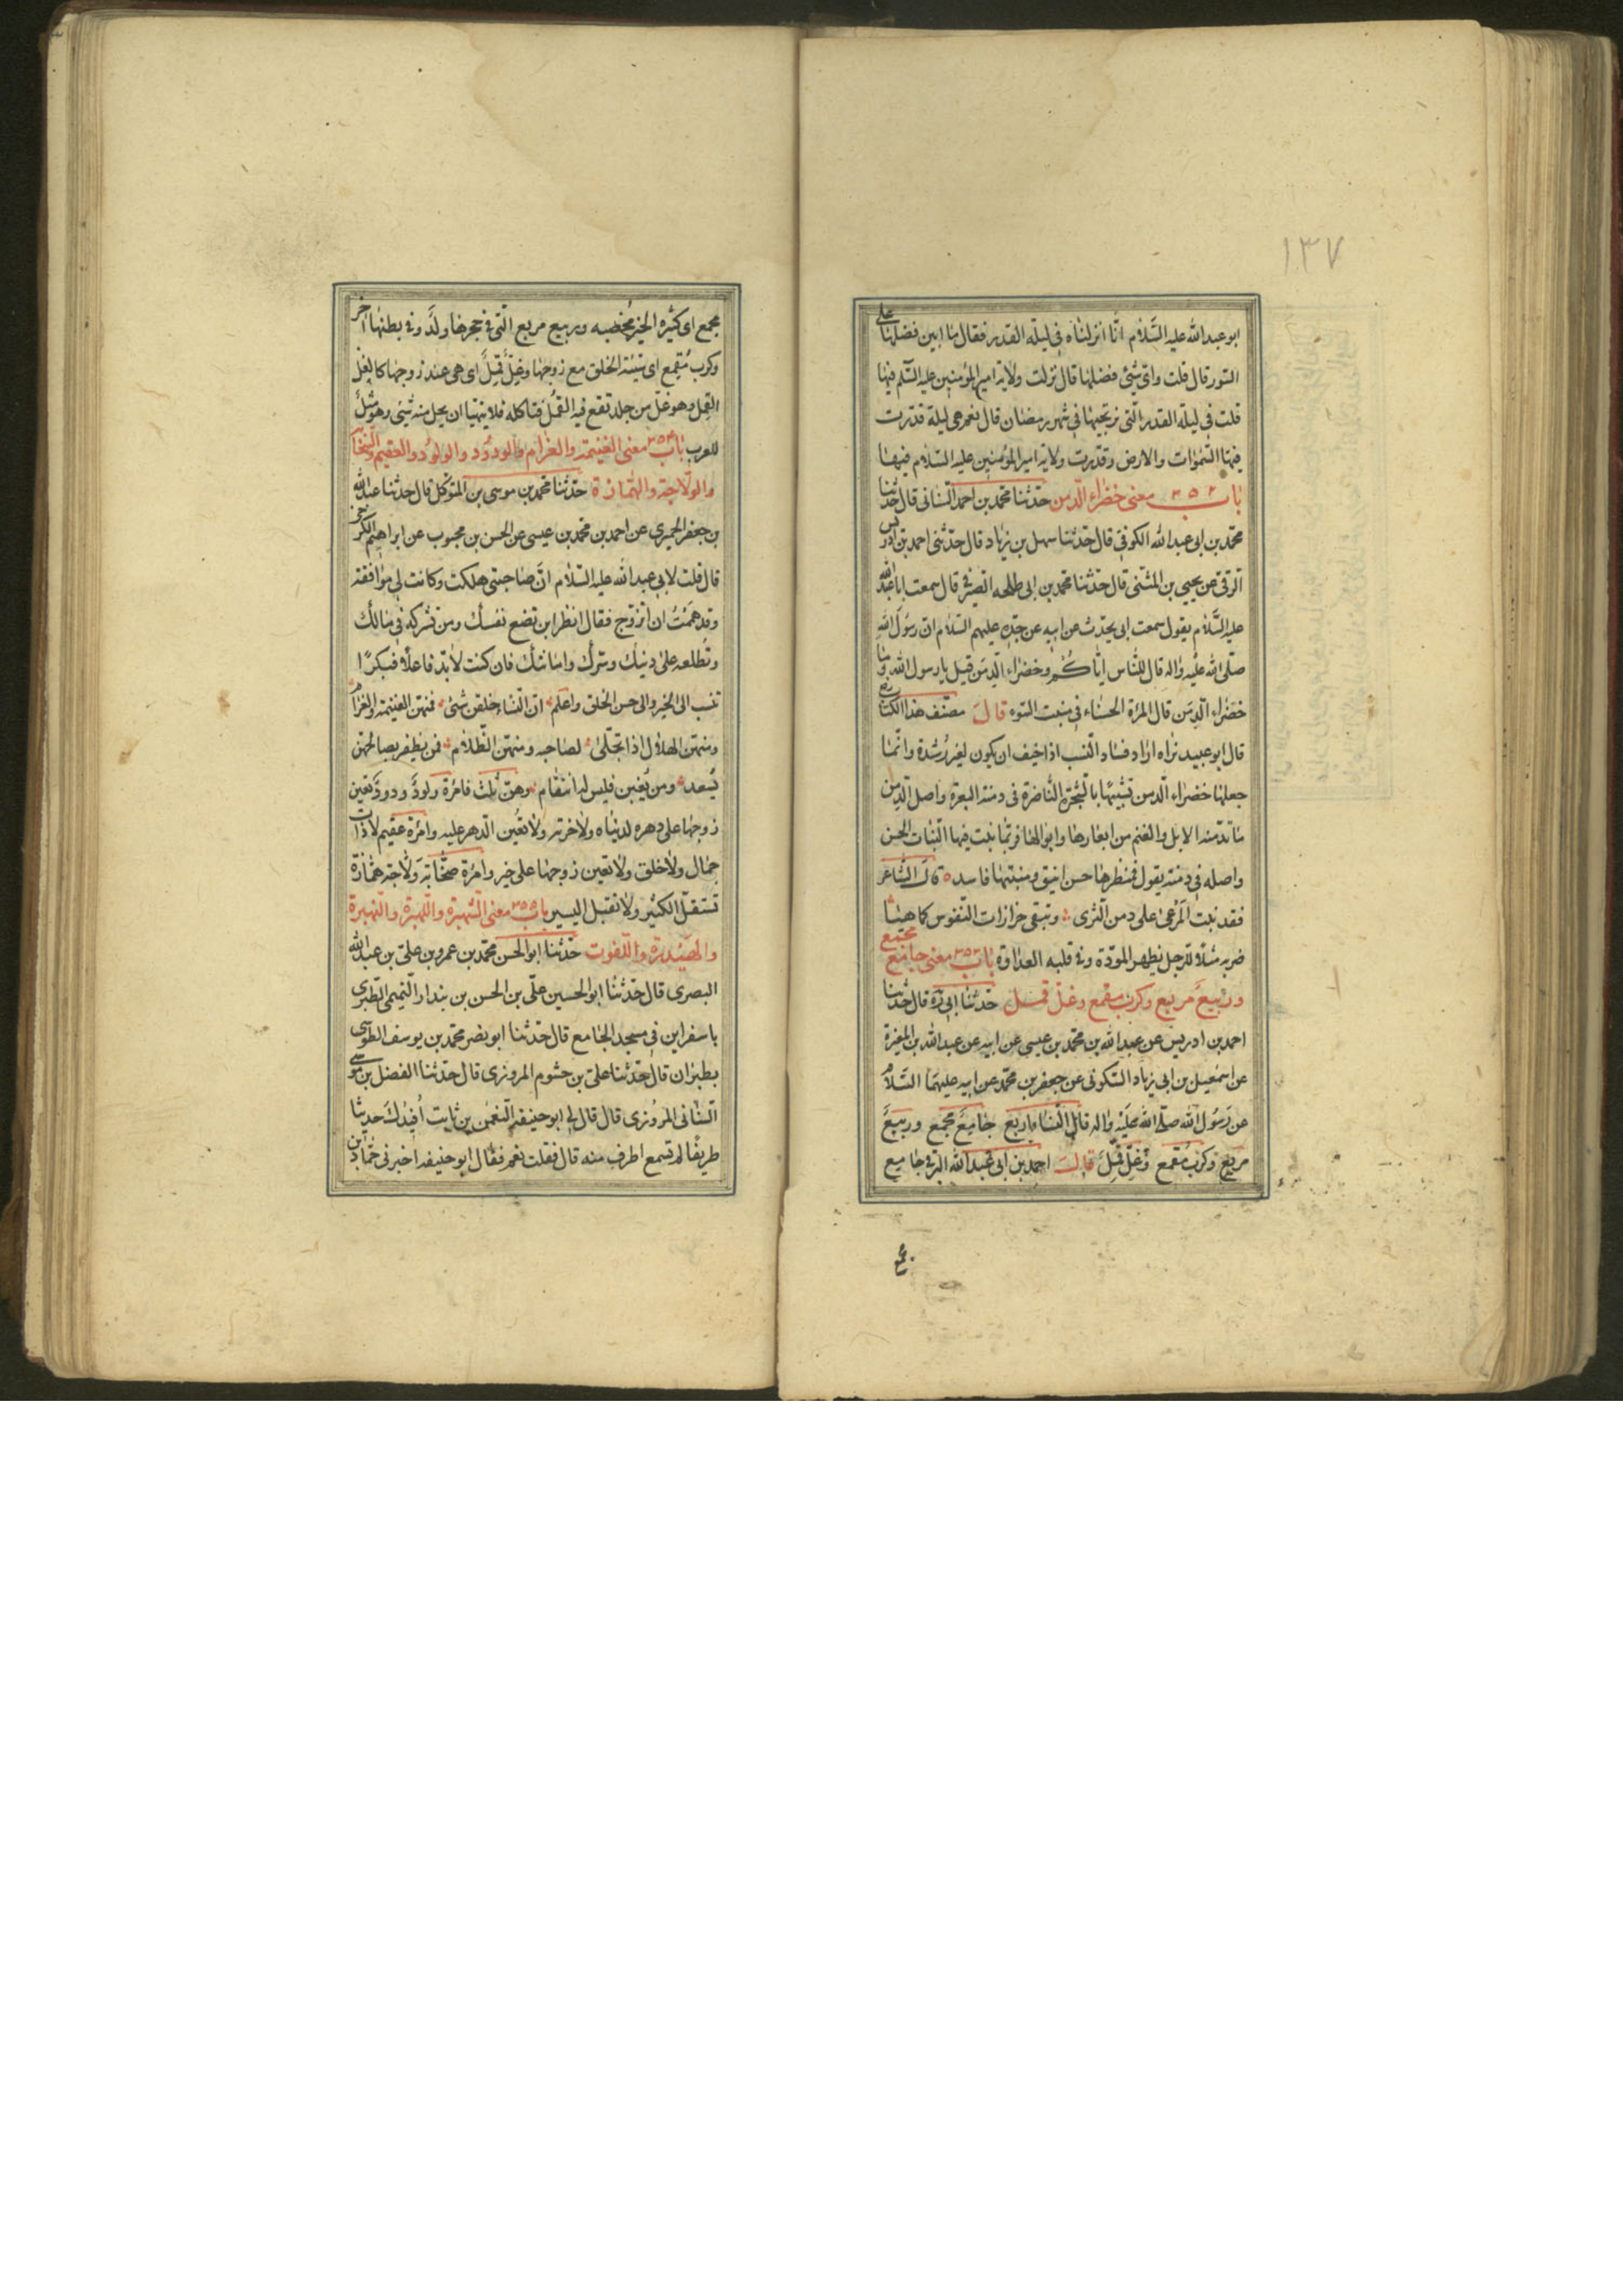 ١٣٧
ابو عبد الله عليه السّلام انّا انزلناه في ليلة القدر فقال ما ابين فضلها على
السّور قال قلت واىّ شيء فضلها قال نزلت ولاية امير المؤمنين عليه السّلم فيها
قلت في ليلة القدر الّتى نرتجيها في شهر رمضان قال نعم هى ليلة قدّرت
فيها السّموات والارض وقدّرت ولاية امير المؤمنين عليه السّلام فيها
باب ٣٥٢ معنى خضراء الدّمن حدّثنا محمّد بن احمد السّنانى قال حدّثنا
محمّد بن ابى عبد الله الكوفى قال حدّثنا سهل بن زياد قال حدّثنى احمد بن
الرّقى عن يحيى بن المثنّى قال حدّثنا محمّد بن ابى طلحه الصّيرفى قال سمعت ابا عبد الله
عليه السّلام يقول سمعت ابى يحدّث عن ابيه عن جدّه عليهم السّلام انّ رسول الله
صلّى الله عليه واله قال للنّاس ايّاكم وخضراء الدّمن قيل يا رسول الله وما
خضراء الدّمن قال المرأة الحسناء في منبت السّوء قال مصنّف هذا الكتاب
قال ابو عبيد نراه اراد فساد النّسب اذا خيف ان يكون لغير رُشدة وانّما
جعلها خضراء الدّمن تشبيهًا بالشّجرة النّاضرة في دمنة البعرة واصل الدّمن
ما تدمّنه الابل والغنم من ابعارها وابوالها فربّما نبت فيها النّبات الحسن
واصله في دمنة يقول فمنظرها حسن انيق ومنبتها فاسد ه قال الشّاعر
فقد نبت المرعى على دمن الثّرى وتبقى حزازات النّفوس كما هيا
ضربه مثلاً للرّجل يظهر المودّة وفى قلبه العداوة باب ٣٥٣ معنى جامع مجمع
وربيع مربع وكرب مقمع وغلّ قمل حدّثنا ابى ره قال حدّثنا
احمد بن ادريس عن عبد الله بن محمّد بن عيسى عن ابيه عن عبد الله بن المغيرة
عن اسمعيل بن ابى زياد السّكونى عن جعفر بن محمّد عن ابيه عليهما السّلام
عن رسول الله صلّى الله عليه واله قال النّساء اربع جامعٌ مجمع وربيعٌ
مربع وكربٌ مقمع وغلٌّ قمِلٌ قال احمد بن ابى عبد الله البرقى جامع
مجمع
مجمع اى كثيرة الخير مخصبه وربيع مربع الّتى في حجرها ولدٌ وفى بطنها اخر
وكرب مُقمع اى سيّئة الخلق مع زوجها وغلّ قملٌ اى هى عند زوجها كالغلّ
القمل وهو غل من جلد تقع فيه القمّل فتاكله فلا يتهيّا ان يحل منه شئ وهو مثلٌ
للعرب باب ٣٥٤ معنى الغنيمة والغرام والودود والولود والعقيم والصّخّابة
والولاّجة والهمّازة حدّثنا محمّد بن موسى بن المتوكّل قال حدّثنا عبد الله
بن جعفر الحميرى عن احمد بن محمّد بن عيسى عن الحسن بن محبوب عن ابراهيم الكرخى
قال قلت لابى عبد الله عليه السّلام انّ صاحبتى هلكت وكانت لى موافقة
وقد هممتُ ان اتزوّج فقال انظر اين تضع نفسك ومن تشركه في مالك
وتُطلعه على دينك وسرّك وامانتك فان كنت لابدّ فاعلاً فبكرًا
تنسب الى الخير والى حسن الخلق واعلم انّ النّساء خلقن شتّى فمنهنّ الغنيمة والغرام
ومنهنّ الهلال اذا تجلّى لصاحبه ومنهنّ الظّلام فمن يظفر بصالحهنّ
يسعد ومن يُغبن فليس له انتقام وهنّ ثلث فامرأة ولودٌ ودودٌ تعين
زوجها على دهره لدنياه ولاخرته ولا تعين الدّهر عليه وامرأة عقيم لا ذات
جمال ولا خلق ولا تعين زوجها على خير وامرأة صخّابة ولاّجة همّازة
تستقلّ الكثير ولا تقبل اليسير باب ٣٥٥ معنى الشّهبرة واللّهبرة والنّهبرة
والهيدرة واللّفوت حدّثنا ابو الحسن محمّد بن عمرو بن علىّ بن عبد الله
البصرى قال حدّثنا ابو الحسين علىّ بن الحسن بن بندار التّميمى الطّبرى
باسفراين في مسجد الجامع قال حدّثنا ابو نصر محمّد بن يوسف الطّوسى
بطبران قال حدّثنا علىّ بن خشوم المروزى قال حدّثنا الفضل بن موسى
السّنانى المروزى قال قال لى ابو حنيفه النّعمن بن ثابت أفيدك حديثًا
طريفًا لم تسمع اطرف منه قال فقلت نعم فقال ابو حنيفه اخبرنى حمّاد بن